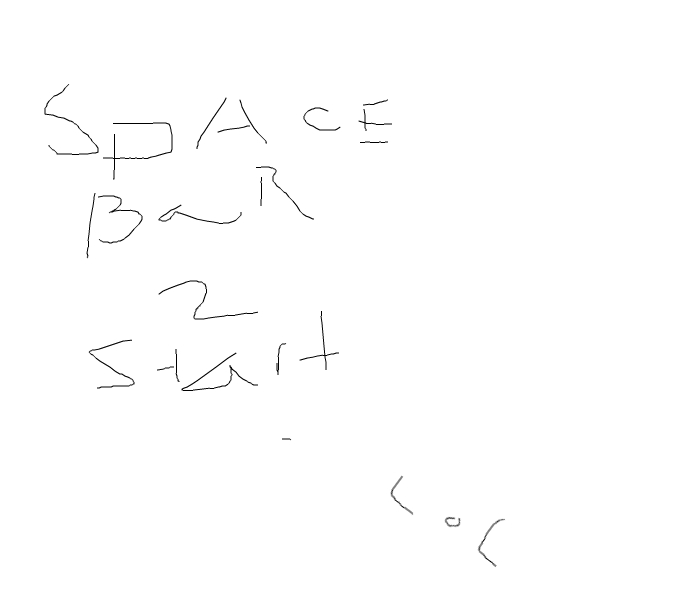 SpACE
BaR
2
start